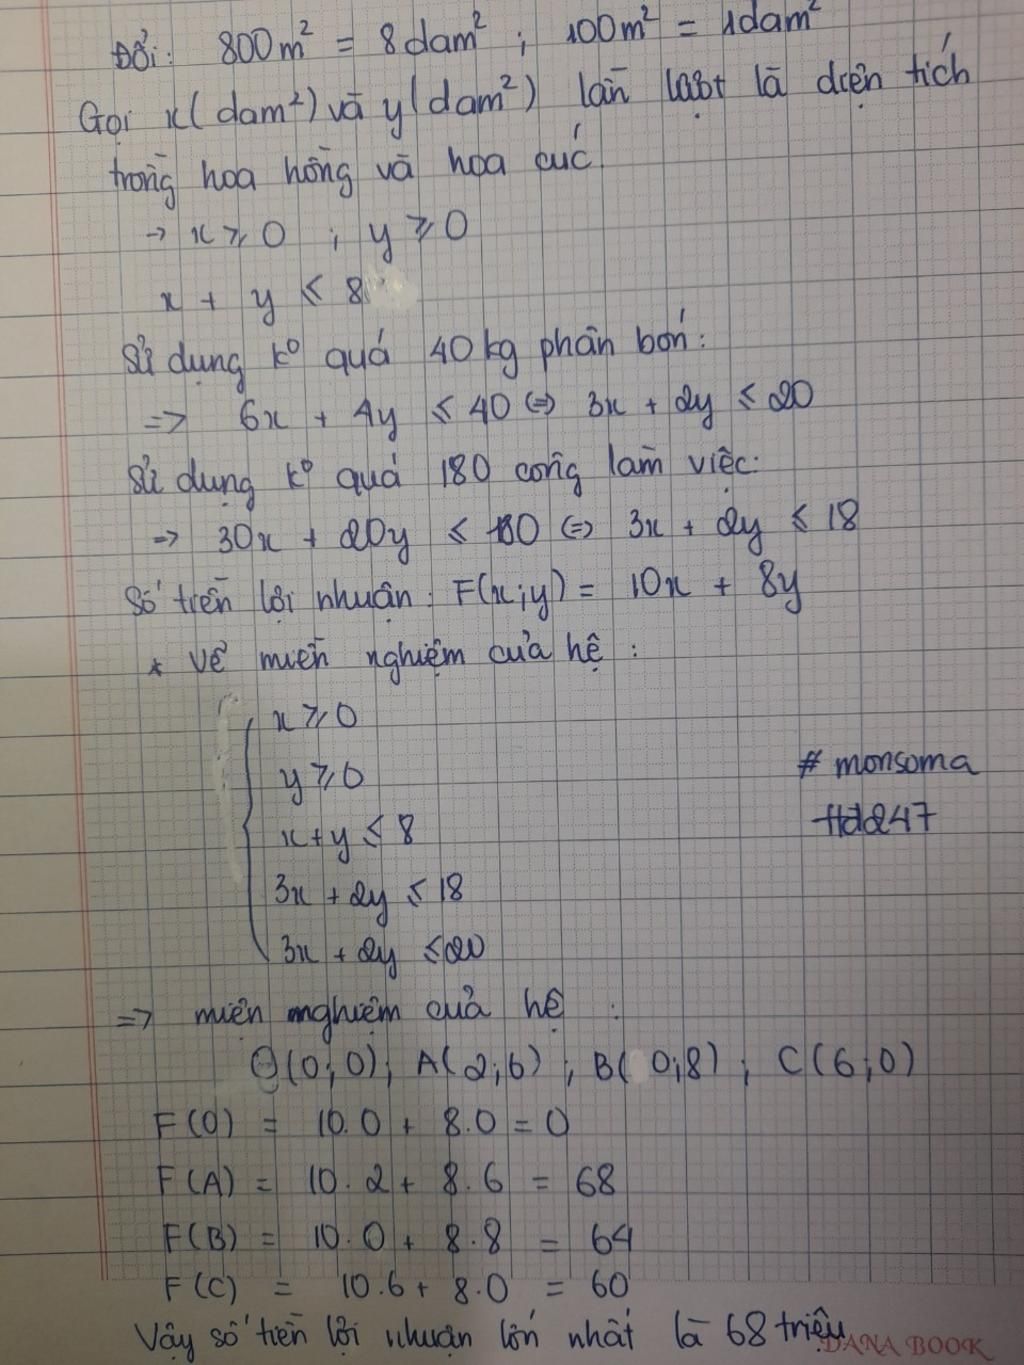 Đổi: 800m² = 8dam² ; 100m² = 1dam²
Gọi x(dam²) và y(dam²) lần lượt là diện tích
trồng hoa hồng và hoa cúc.
→ x ≥ 0 ; y ≥ 0
x + y ≤ 8
Sử dụng k° quá 40kg phân bón:
=> 6x + 4y ≤ 40 <=> 3x + 2y ≤ 20
Sử dụng k° quá 180 công làm việc:
→ 30x + 20y ≤ 180 <=> 3x + 2y ≤ 18
Số tiền lợi nhuận : F(x;y) = 10x + 8y
* Vẽ miền nghiệm của hệ :
x ≥ 0
y ≥ 0
# monsoma
x+y ≤ 8
#dd247
3x + 2y ≤ 18
3x + 2y ≤ 20
=> miền nghiệm của hệ :
O(0;0); A(2;6) ; B(0;8) ; C(6;0)
F(O) = 10.0 + 8.0 = 0
F(A) = 10.2 + 8.6 = 68
F(B) = 10.0 + 8.8 = 64
F(C) = 10.6 + 8.0 = 60
Vậy số tiền lợi nhuận lớn nhất là 68 triệu
DANA BOOK